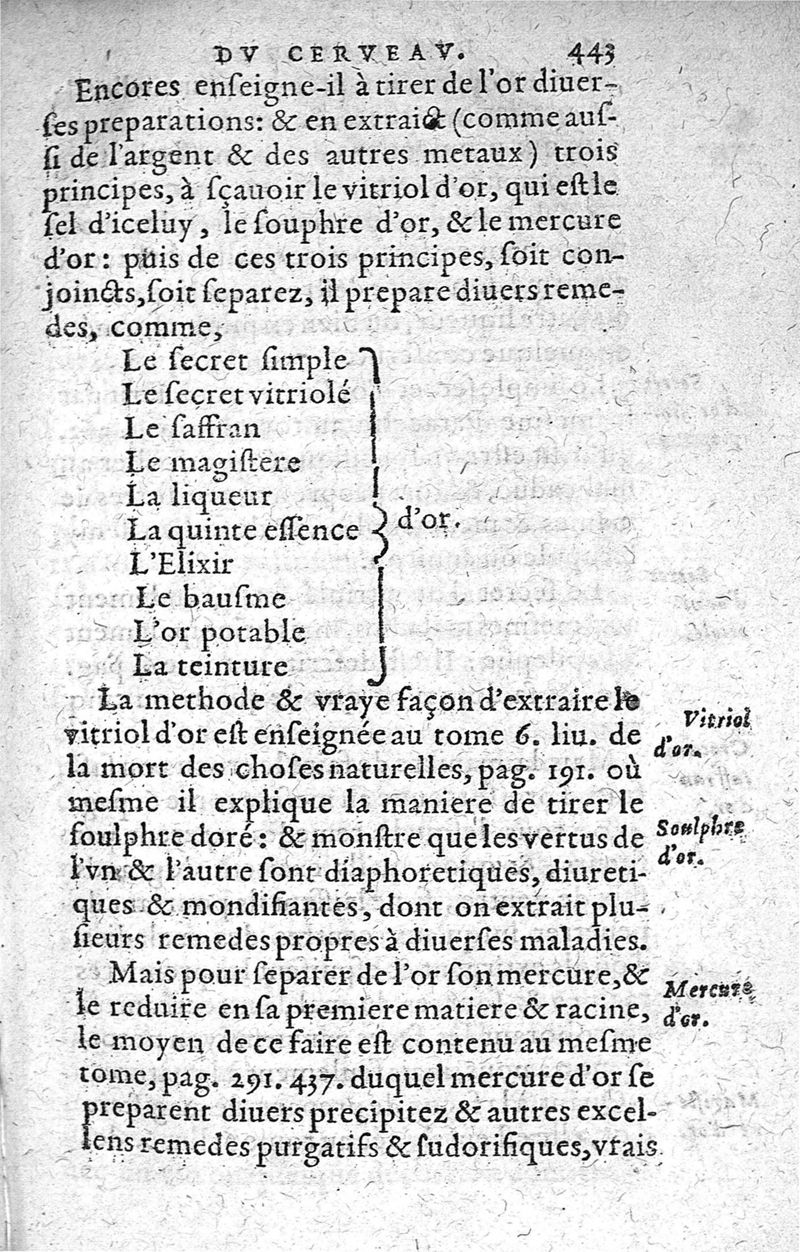 DV CERVEAV. 443
Encores enſeigne-il à tirer de l'or diuer-
ſes preparations: & en extraict (comme auſ-
ſi de l'argent & des autres metaux) trois
principes, à ſçauoir le vitriol d'or, qui eſt le
ſel d'iceluy, le ſouphre d'or, & le mercure
d'or: puis de ces trois principes, ſoit con-
joincts, ſoit ſeparez, il prepare diuers reme-
des, comme,
Le ſecret ſimple
Le ſecret vitriolé
Le ſaffran
Le magiſtere
La liqueur
La quinte eſſence } d'or.
L'Elixir
Le bauſme
L'or potable
La teinture
La methode & vraye façon d'extraire le
vitriol d'or eſt enſeignée au tome 6. liu. de
la mort des choſes naturelles, pag. 191. où
meſme il explique la maniere de tirer le
ſoulphre doré: & monſtre que les vertus de
l'vn & l'autre ſont diaphoretiques, diureti-
ques & mondifiantes, dont on extrait plu-
ſieurs remedes propres à diuerſes maladies.
Mais pour ſeparer de l'or ſon mercure, &
le reduire en ſa premiere matiere & racine,
le moyen de ce faire eſt contenu au meſme
tome, pag. 291. 437. duquel mercure d'or ſe
preparent diuers precipitez & autres excel-
lens remedes purgatifs & ſudorifiques, vrais
Vitriol
d'or.
Soulphre
d'or.
Mercure
d'or.